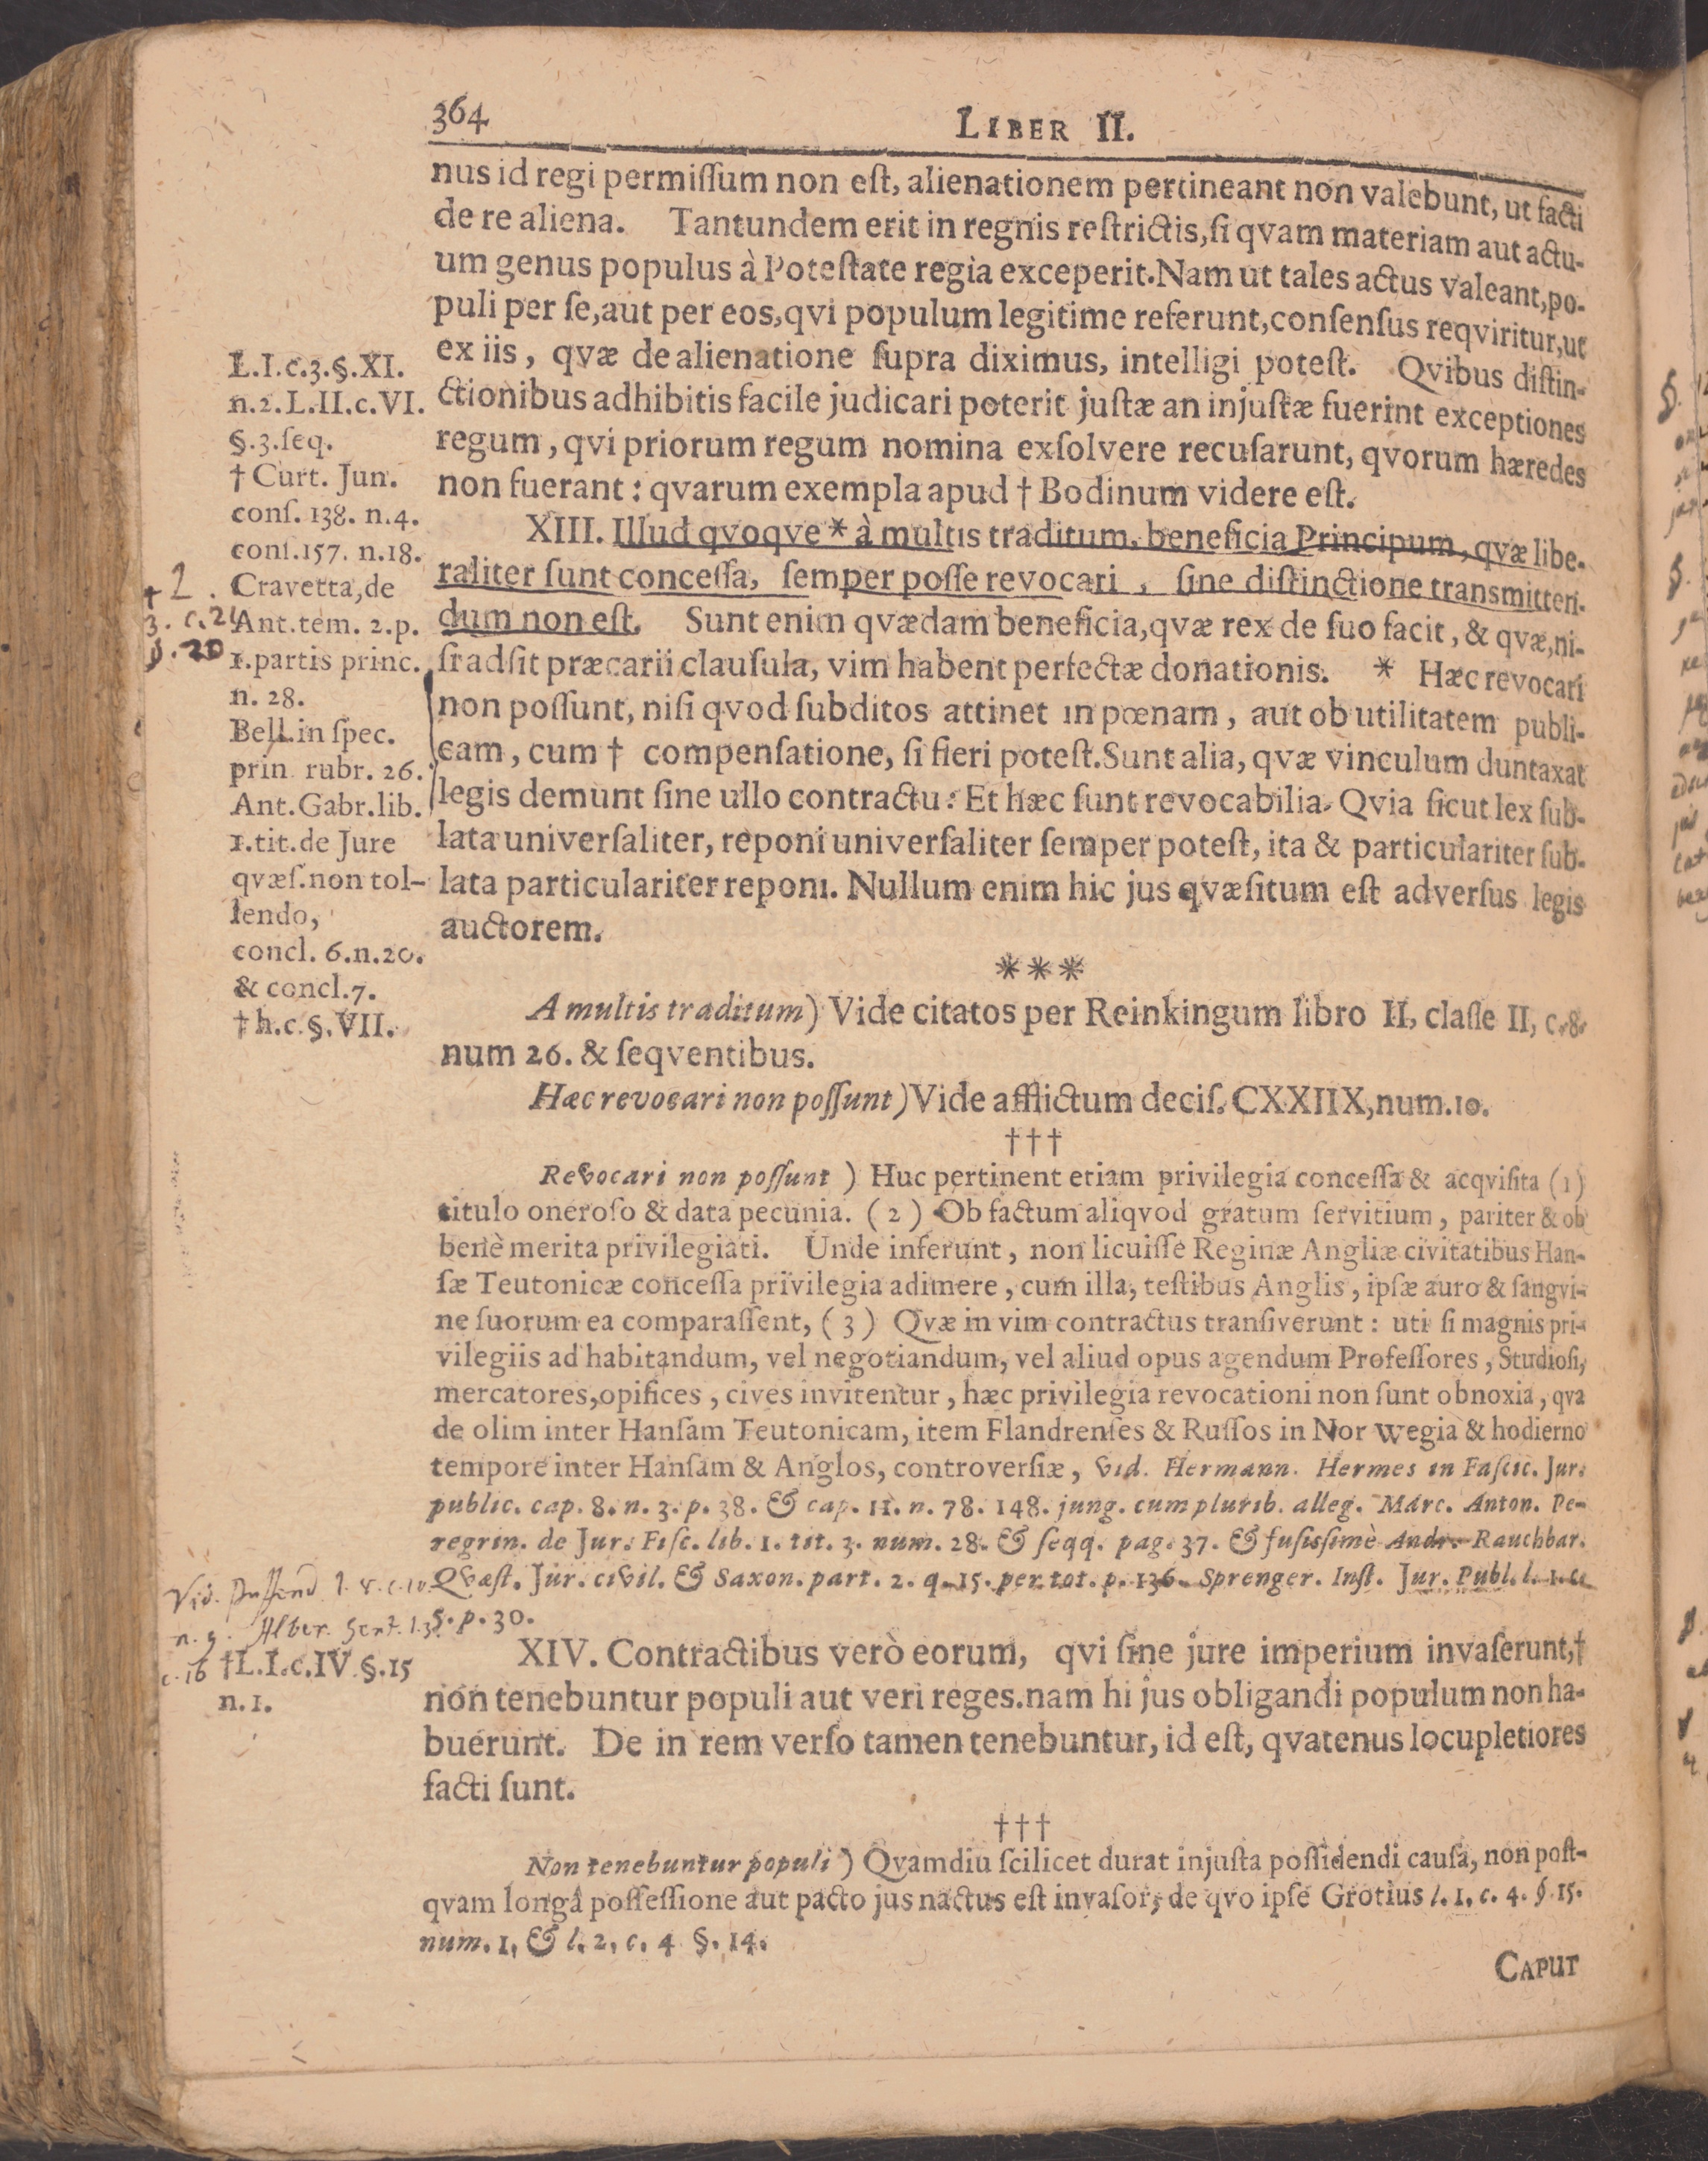 364
LIBER II.
nus id regi permiſſum non eſt, alienationem pertineant non valebunt, ut facti
de re aliena. Tantundem erit in regnis reſtrictis,ſi qvam materiam aut actu-
um genus populus à Poteſtate regia exceperit.Nam ut tales actus valeant,po-
puli per ſe,aut per eos,qvi populum legitime referunt,conſenſus reqviritur,ut
ex iis, qvæ de alienatione ſupra diximus, intelligi poteſt. Qvibus diſtin-
ctionibus adhibitis facile judicari poterit juſtæ an injuſtæ fuerint exceptiones
regum, qvi priorum regum nomina exſolvere recuſarunt, qvorum hæredes
non fuerant: qvarum exempla apud † Bodinum videre eſt.
XIII. Illud qvoqve * à multis traditum, beneficia Principum, qvæ libe-
raliter ſunt conceſſa, ſemper poſſe revocari, ſine diſtinctione transmitten-
dum non eſt. Sunt enim qvædam beneficia,qvæ rex de ſuo facit, & qvæ,ni-
ſi adſit præcarii clauſula, vim habent perfectæ donationis. * Hæc revocari
non poſſunt, niſi qvod ſubditos attinet in pœnam, aut ob utilitatem publi-
cam, cum † compenſatione, ſi fieri poteſt.Sunt alia, qvæ vinculum duntaxat
legis demunt ſine ullo contractu: Et hæc ſunt revocabilia. Qvia ſicut lex ſub-
lata univerſaliter, reponi univerſaliter ſemper poteſt, ita & particulariter ſub-
lata particulariter reponi. Nullum enim hic jus qvæſitum eſt adverſus legis
auctorem.
L.I.c.3.§.XI.
n.2.L.II.c.VI.
§.3.ſeq.
† Curt. Jun.
conſ. 138. n.4.
conſ.157. n.18.
Cravetta,de
Ant.tem. 2.p.
1.partis princ.
n. 28.
Bell.in ſpec.
prin. rubr. 26.
Ant.Gabr.lib.
1.tit.de Jure
qvæſ.non tol-
lendo,
concl. 6.n.20.
& concl.7.
† h.c.§.VII.
† 2.
3. c.21
§.20
***
A multis traditum) Vide citatos per Reinkingum libro II, claſſe II, c.8.
num 26. & ſeqventibus.
Hæc revocari non poſſunt) Vide afflictum deciſ. CXXIIX,num.10.
†††
Revocari non poſſunt ) Huc pertinent etiam privilegia conceſſa & acqviſita (1)
titulo oneroſo & data pecunia. (2) Ob factum aliqvod gratum ſervitium, pariter & ob
benè merita privilegiati. Unde inferunt, non licuiſſe Reginæ Angliæ civitatibus Han-
ſæ Teutonicæ conceſſa privilegia adimere, cum illa, teſtibus Anglis, ipſæ auro & ſangvi-
ne ſuorum ea comparaſſent, (3) Qvæ in vim contractus tranſiverunt: uti ſi magnis pri-
vilegiis ad habitandum, vel negotiandum, vel aliud opus agendum Profeſſores, Studioſi,
mercatores,opifices, cives invitentur, hæc privilegia revocationi non ſunt obnoxia, qva
de olim inter Hanſam Teutonicam, item Flandrenſes & Ruſſos in Nor wegia & hodierno
tempore inter Hanſam & Anglos, controverſiæ, vid. Hermann. Hermes in Faſcic. Jur.
public. cap. 8. n. 3. p. 38. & cap. 11. n. 78. 148. jung. cum plurib. alleg. Marc. Anton. Pe-
regrin. de Jur. Fiſc. lib. 1. tit. 3. num. 28. & ſeqq. pag. 37. & fuſisſimè Andr. Rauchbar.
Qvæſt. Jur. civil. & Saxon. part. 2. q. 15. per tot. p. 136. Sprenger. Inſt. Jur. Publ. l. 1. c.
5. p. 30.
Vid. Puffend l. 8. c. 10.
n. 9. Alber. Gent. l.3.
c. 16
XIV. Contractibus verò eorum, qvi ſine jure imperium invaſerunt,†
non tenebuntur populi aut veri reges.nam hi jus obligandi populum non ha-
buerunt. De in rem verſo tamen tenebuntur, id eſt, qvatenus locupletiores
facti ſunt.
†L.I.c.IV.§.15
n.1.
†††
Non tenebuntur populi) Qvamdiu ſcilicet durat injuſta poſſidendi cauſa, non poſt-
qvam longâ poſſeſſione aut pacto jus nactus eſt invaſor, de qvo ipſe Grotius l. 1, c. 4. §.15.
num. 1, & l. 2, c. 4 §. 14.
CAPUT